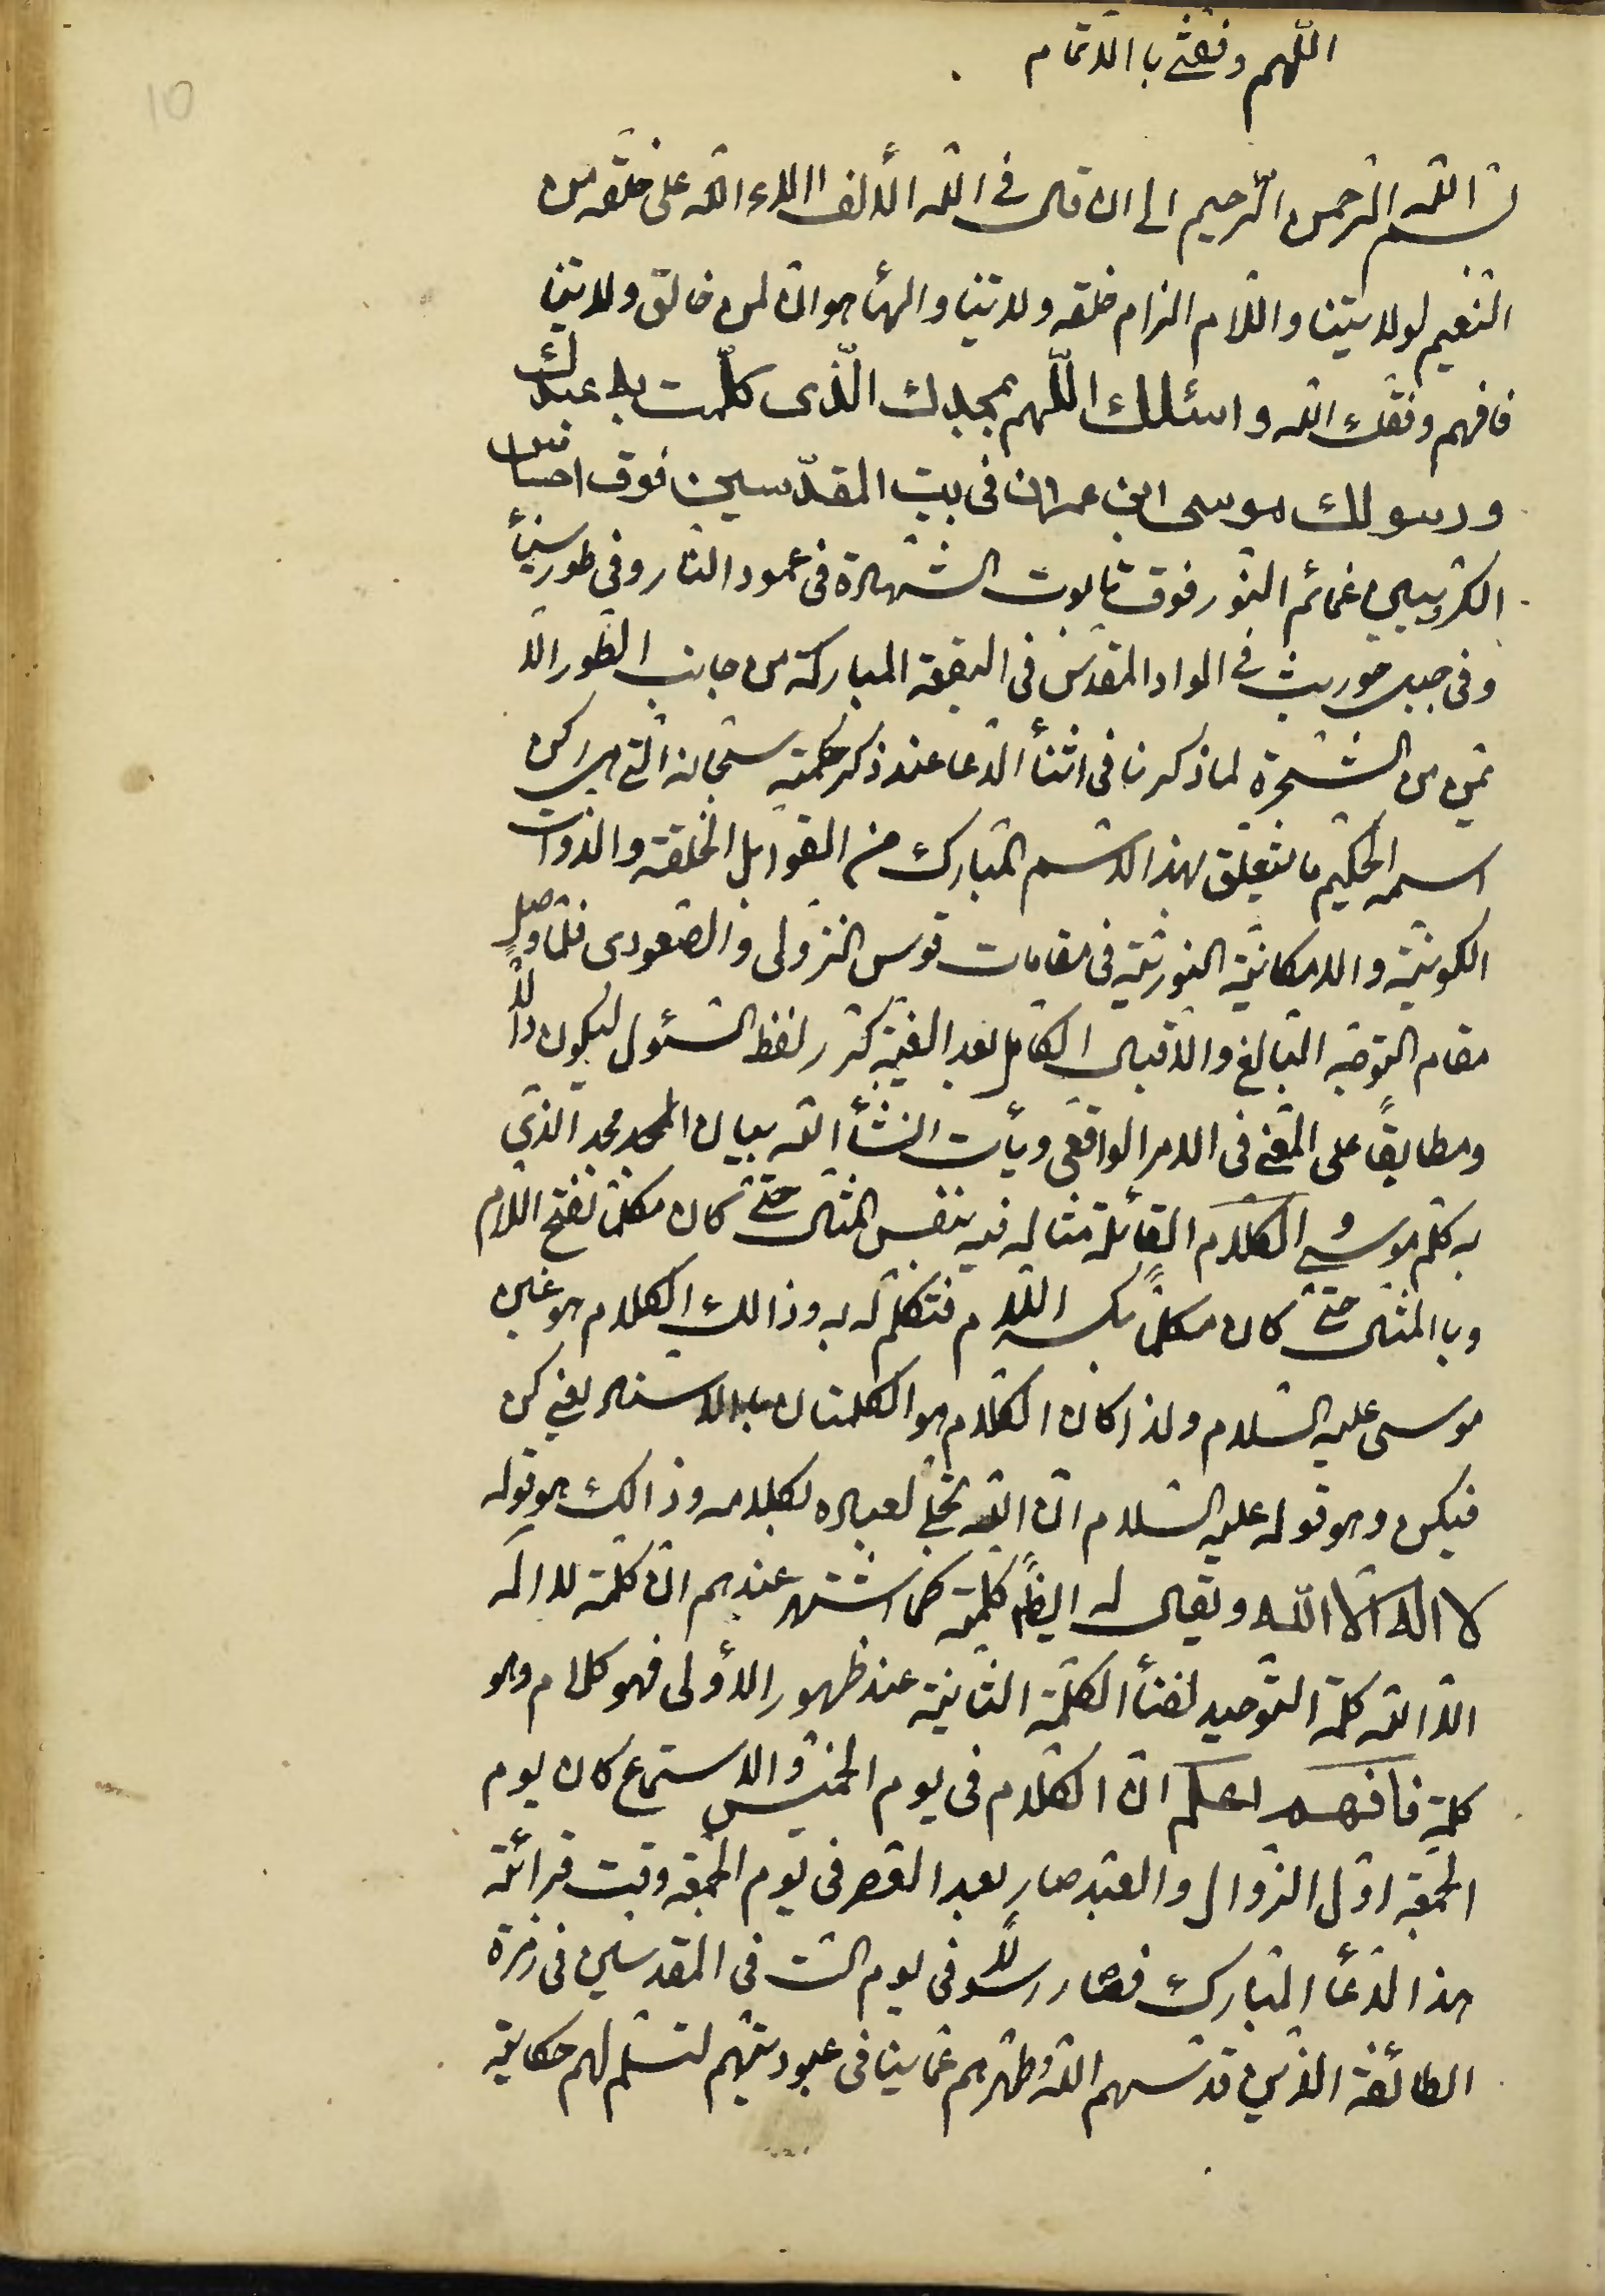 10
اللّهم وفقنی با الاتمام
بسم اللّه الرّحمن الرّحیم الی ان قال فی اللّه الألف الاء اللّه علی خلقه من
النّعیم لولایتنا و اللام الزام خلقه ولایتنا و الهأ هوان لمن خالف ولایتنا
فافهم وفقك اللّه و اسئلك اللّهم بمجدك الّذی كلّمت به عبدك
ورسولك موسی ابن عمران فی بیت المقدّسین فوق احساس
الكرّوبیین غمائم النّور فوق تابوت الشّهادة فی عمود النّار و فی طور سینأ
و فی جبل حوریث فی الواد المقدّس فی البقعة المباركة من جانب الطّور الا
یمن من الشّجرة لما ذكرنا فی اثنأ الدّعا عند ذكر حكمته سبحانه الّتی هی ركن
اسمه الحكیم ما یتعلّق بهذا الاسم المبارك من القوابل الخلقة و الذوات
الكونیّة و الامكانیّة النوریّة فی مقامات قوس النّزولی و الصّعودی فلمّا وصل
مقام التّوجّه البالغ و الاقبال الكامل بعد الغیبة كرّر لفظ السّئول لیكون دالّاً
ومطابقاً علی المعنی فی الامر الواقعی و یأت انشأ اللّه بیان المجد مجد الّذی
به كلّم موسی و الكلام القأئلة مثاله فیه بنفس المثال حتّی كان مكلّماً بفتح اللام
و با المثال حتّی كان مكلّماً بكسر اللام فتكلّم له به و ذالك الكلام هو عین
موسی علیه السّلام و لذا كان الكلام هو الكلمتان بالاسناد یعنی كن
فیكون و هو قوله علیه السّلام انّ اللّه تجلّی لعباده بكلامه و ذالك هو قوله
لا اله الّا اللّه و یقال له ایضاً كلمة كما اشتهر عندهم انّ كلمة لا اله
الّا اللّه كلمة التّوحید لفنأ الكلمة الثّانیة عند ظهور الأولی فهو كلام و هو
كلمة فافهم اعلم انّ الكلام فی یوم الخمیس و الاستماع كان یوم
الجمعة اوّل الزّوال و العبد صار بعد العصر فی یوم الجمعة وقت قرائة
هذا الدّعأ المبارك فصار رسولاً فی یوم السّبت فی المقدسین فی زمرة
الطائفة الذین قدّسهم اللّه و طهّرهم عمّا ینافی عبودیّتهم لتسلم لهم حكایة